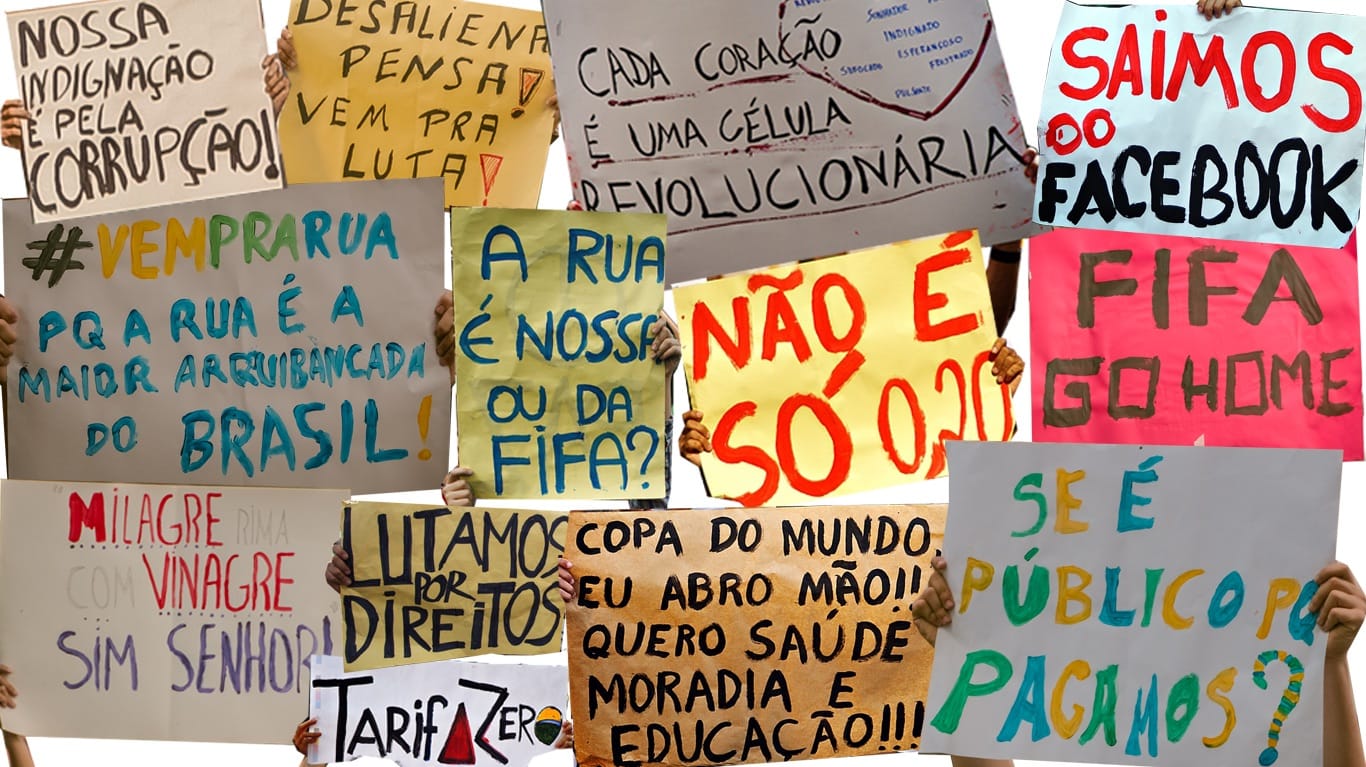 NOSSA
INDIGNAÇÃO
É PELA
CORRUPÇÃO!
DESALIENA
PENSA!
VEM PRA
LUTA!
CADA CORAÇÃO
É UMA CÉLULA
REVOLUCIONÁRIA
SONHADOR
INDIGNADO
ESPERANÇOSO
SUFOCADO FRUSTRADO
PULSANTE
SAIMOS
DO
FACEBOOK
#VEMPRARUA
PQ A RUA É A
MAIOR ARQUIBANCADA
DO BRASIL!
A RUA
É NOSSA
OU DA
FIFA?
NÃO É
SÓ 0,20
FIFA
GO HOME
MILAGRE RIMA
COM VINAGRE
SIM SENHOR!
LUTAMOS
POR
DIREITOS
TARIFA ZERO
COPA DO MUNDO
EU ABRO MÃO!!
QUERO SAÚDE
MORADIA E
EDUCAÇÃO!!!
SE É
PÚBLICO PQ
PAGAMOS?